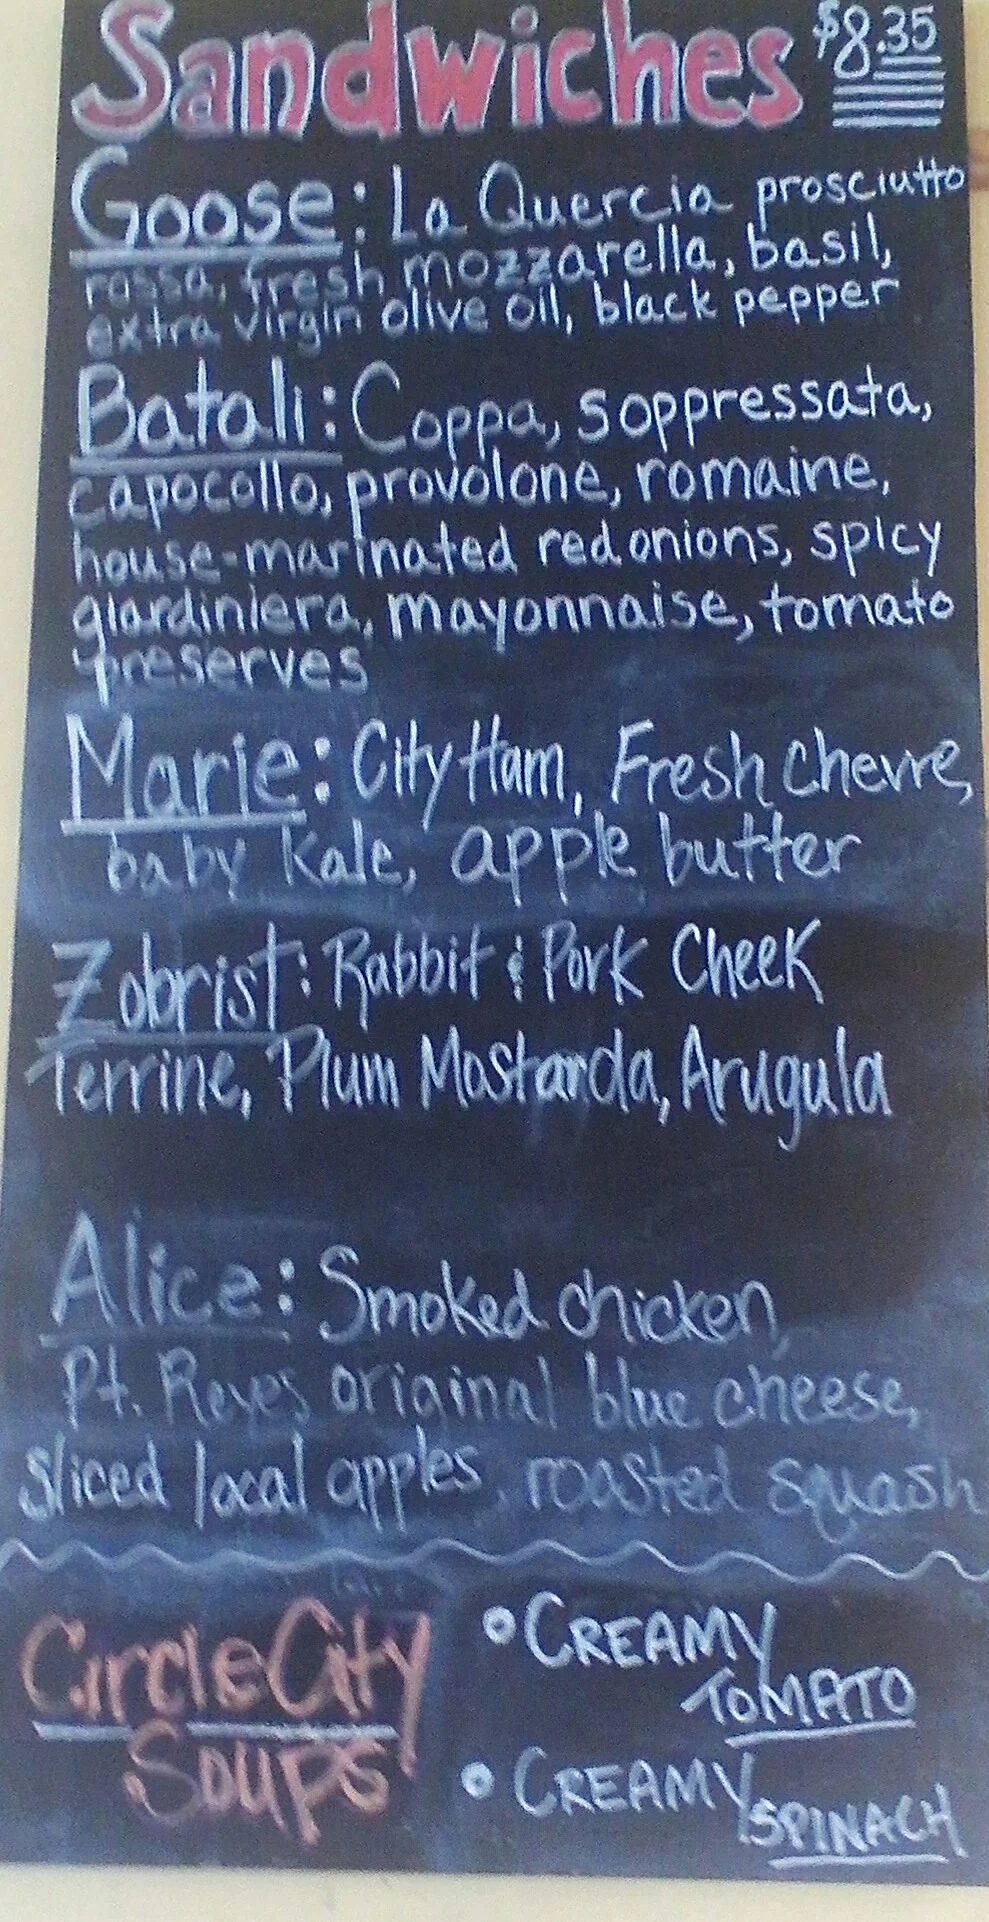 Sandwiches $8.35
Goose: La Quercia prosciutto
rossa, fresh mozzarella, basil,
extra virgin olive oil, black pepper
Batali: Coppa, soppressata,
capocollo, provolone, romaine,
house-marinated red onions, spicy
giardiniera, mayonnaise, tomato
preserves
Marie: City Ham, Fresh chevre,
baby Kale, apple butter
Zobrist: Rabbit & Pork Cheek
Terrine, Plum Mostarda, Arugula
Alice: Smoked chicken,
Pt. Reyes original blue cheese,
sliced local apples, roasted squash
Circle City
Soups
• CREAMY
TOMATO
• CREAMY
SPINACH